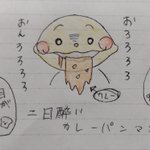 おろろろろ
おんろろろろ
カレー
二日酔い
カレーパンマン